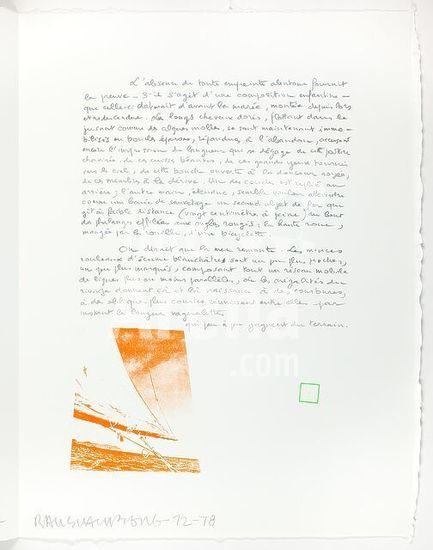 L'absence de toute empreinte alentour fournit
la preuve — s'il s'agit d'une composition enfantine —
que celle-ci daterait d'avant la marée, montée depuis lors
et redescendue. Les longs cheveux dorés, flottant dans le
jusant comme des algues molles, se sont maintenant immo-
bilisés en boucles éparses, répandues à l'abandon,
encore l'impression de langueur qui se dégage de cette
chavirée, de ces cuisses béantes, de ces grands yeux tournés
vers le ciel, de cette bouche ouverte à la douceur
de ces membres à la dérive. Un des est replié en
arrière; l'autre main, étendue, semble vouloir atteindre
comme une bouée de sauvetage un second objet de fer qui
gît à faible distance (vingt centimètres à peine) au bout
de phalanges effilées aux ongles rongés: la haute roue,
mangée par la rouille, d'une bicyclette.
On dirait que la mer remonte. Les minces
rouleaux d'écume blanchâtres sont un peu plus proches,
un peu plus marqués, composant tout un réseau mobile
de lignes plus ou moins parallèles, où les inégalités du
rivage donnent çà et là naissance à des courbures,
à des obliques plus courtes réunissant entre elles par
instant la longueur
qui peu à peu gagnent du terrain.
.com
RAUSCHENBERG-72-78